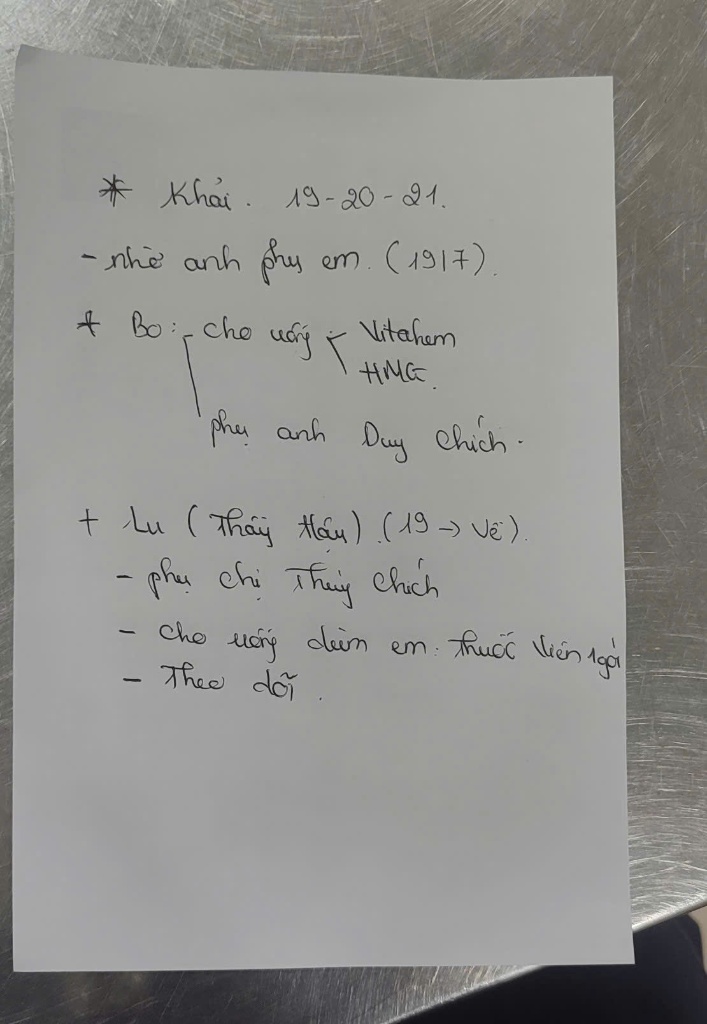 * Khải. 19-20-21.
- nhờ anh phụ em. (19/7).
+ Bo: - cho uống - Vitahem
HMG.
phụ anh Duy chích.
+ Lu (Thầy Hậu). (19 → Về).
- phụ chị Thúy chích
- cho uống dùm em: thuốc viên 1gói
- Theo dõi.